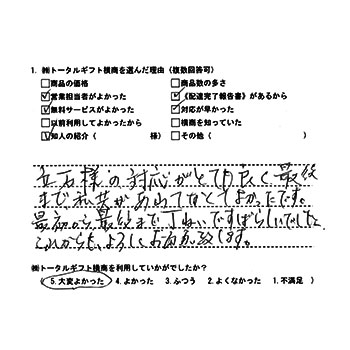 1. ㈱トータルギフト横商を選んだ理由（複数回答可）
□商品の価格 □商品数の多さ
☑営業担当者がよかった ☑《配達完了報告書》があるから
☑無料サービスがよかった ☑対応が早かった
□以前利用してよかったから □横商を知っていた
☑知人の紹介（ 様） □その他（ ）
様の対応がとても良く最終
まで私共があわてなくてよかったです。
最初から最終まで丁ねいですばらしいでした
これからも、よろしくお願い致します。
㈱トータルギフト横商を利用していかがでしたか？
（ 5.大変よかった 4.よかった 3.ふつう 2.よくなかった 1.不満足 ）